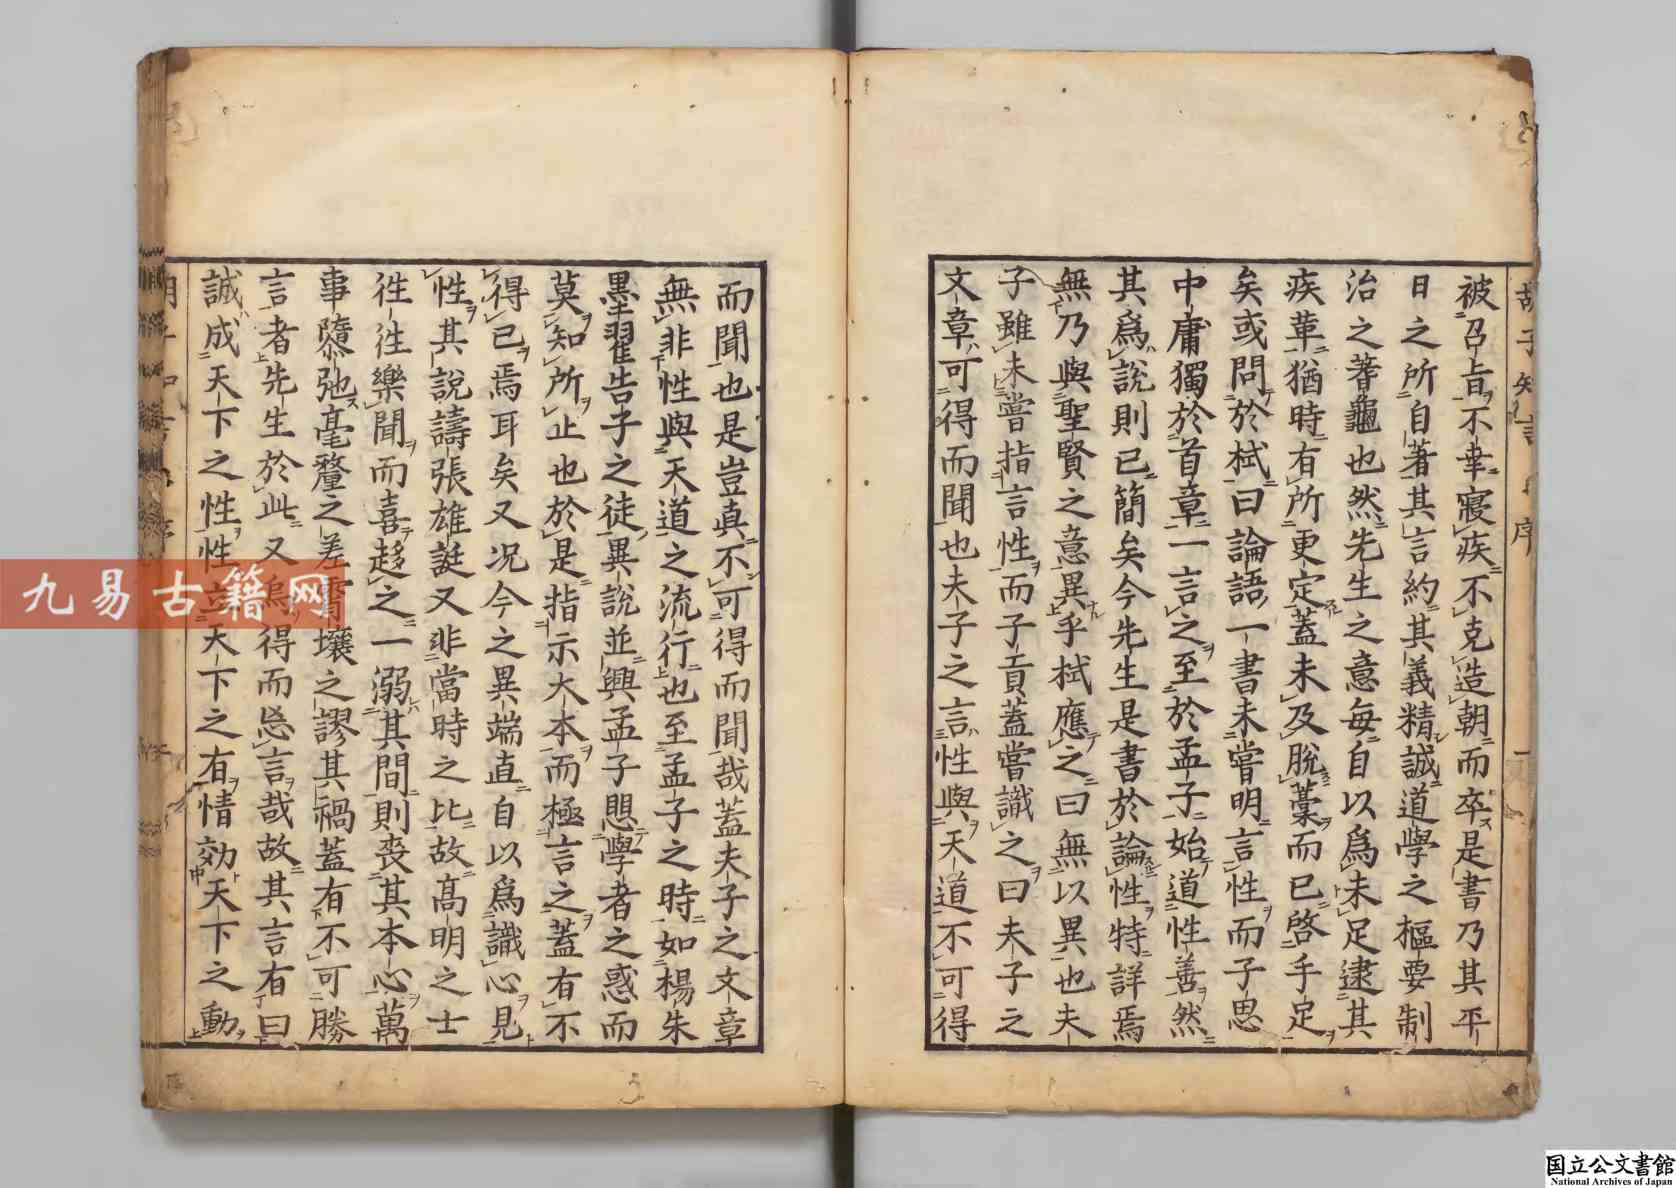 胡子知言序
被召旨不幸寢疾不克造朝而卒是書乃其平
日之所自著其言約其義精誠道學之樞要制
治之蓍龜也然先生之意每自以爲未足逮其
疾革猶時有所更定蓋未及脫藁而已啓手足
矣或問於栻曰論語一書未嘗明言性而子思
中庸獨於首章一言之至於孟子始道性善然
其爲說則已簡矣今先生是書於論性特詳焉
無乃與聖賢之意異乎栻應之曰無以異也夫
子雖未嘗指言性而子貢蓋嘗識之曰夫子之
文章可得而聞也夫子之言性與天道不可得
而聞也是豈真不可得而聞哉蓋夫子之文章
無非性與天道之流行也至孟子之時如楊朱
墨翟告子之徒異說並興孟子懼學者之惑而
莫知所止也於是指示大本而極言之蓋有不
得已焉耳矣又况今之異端直自以爲識心見
性其說譸張雄誕又非當時之比故高明之士
徃徃樂聞而喜趍之一溺其間則喪其本心萬
事隳弛毫釐之差霄壤之謬其禍蓋有不可勝
言者先生於此又烏得而忘言哉故其言有曰
誠成天下之性性立天下之有情効天下之動
九易古籍网
国立公文書館
National Archives of Japan